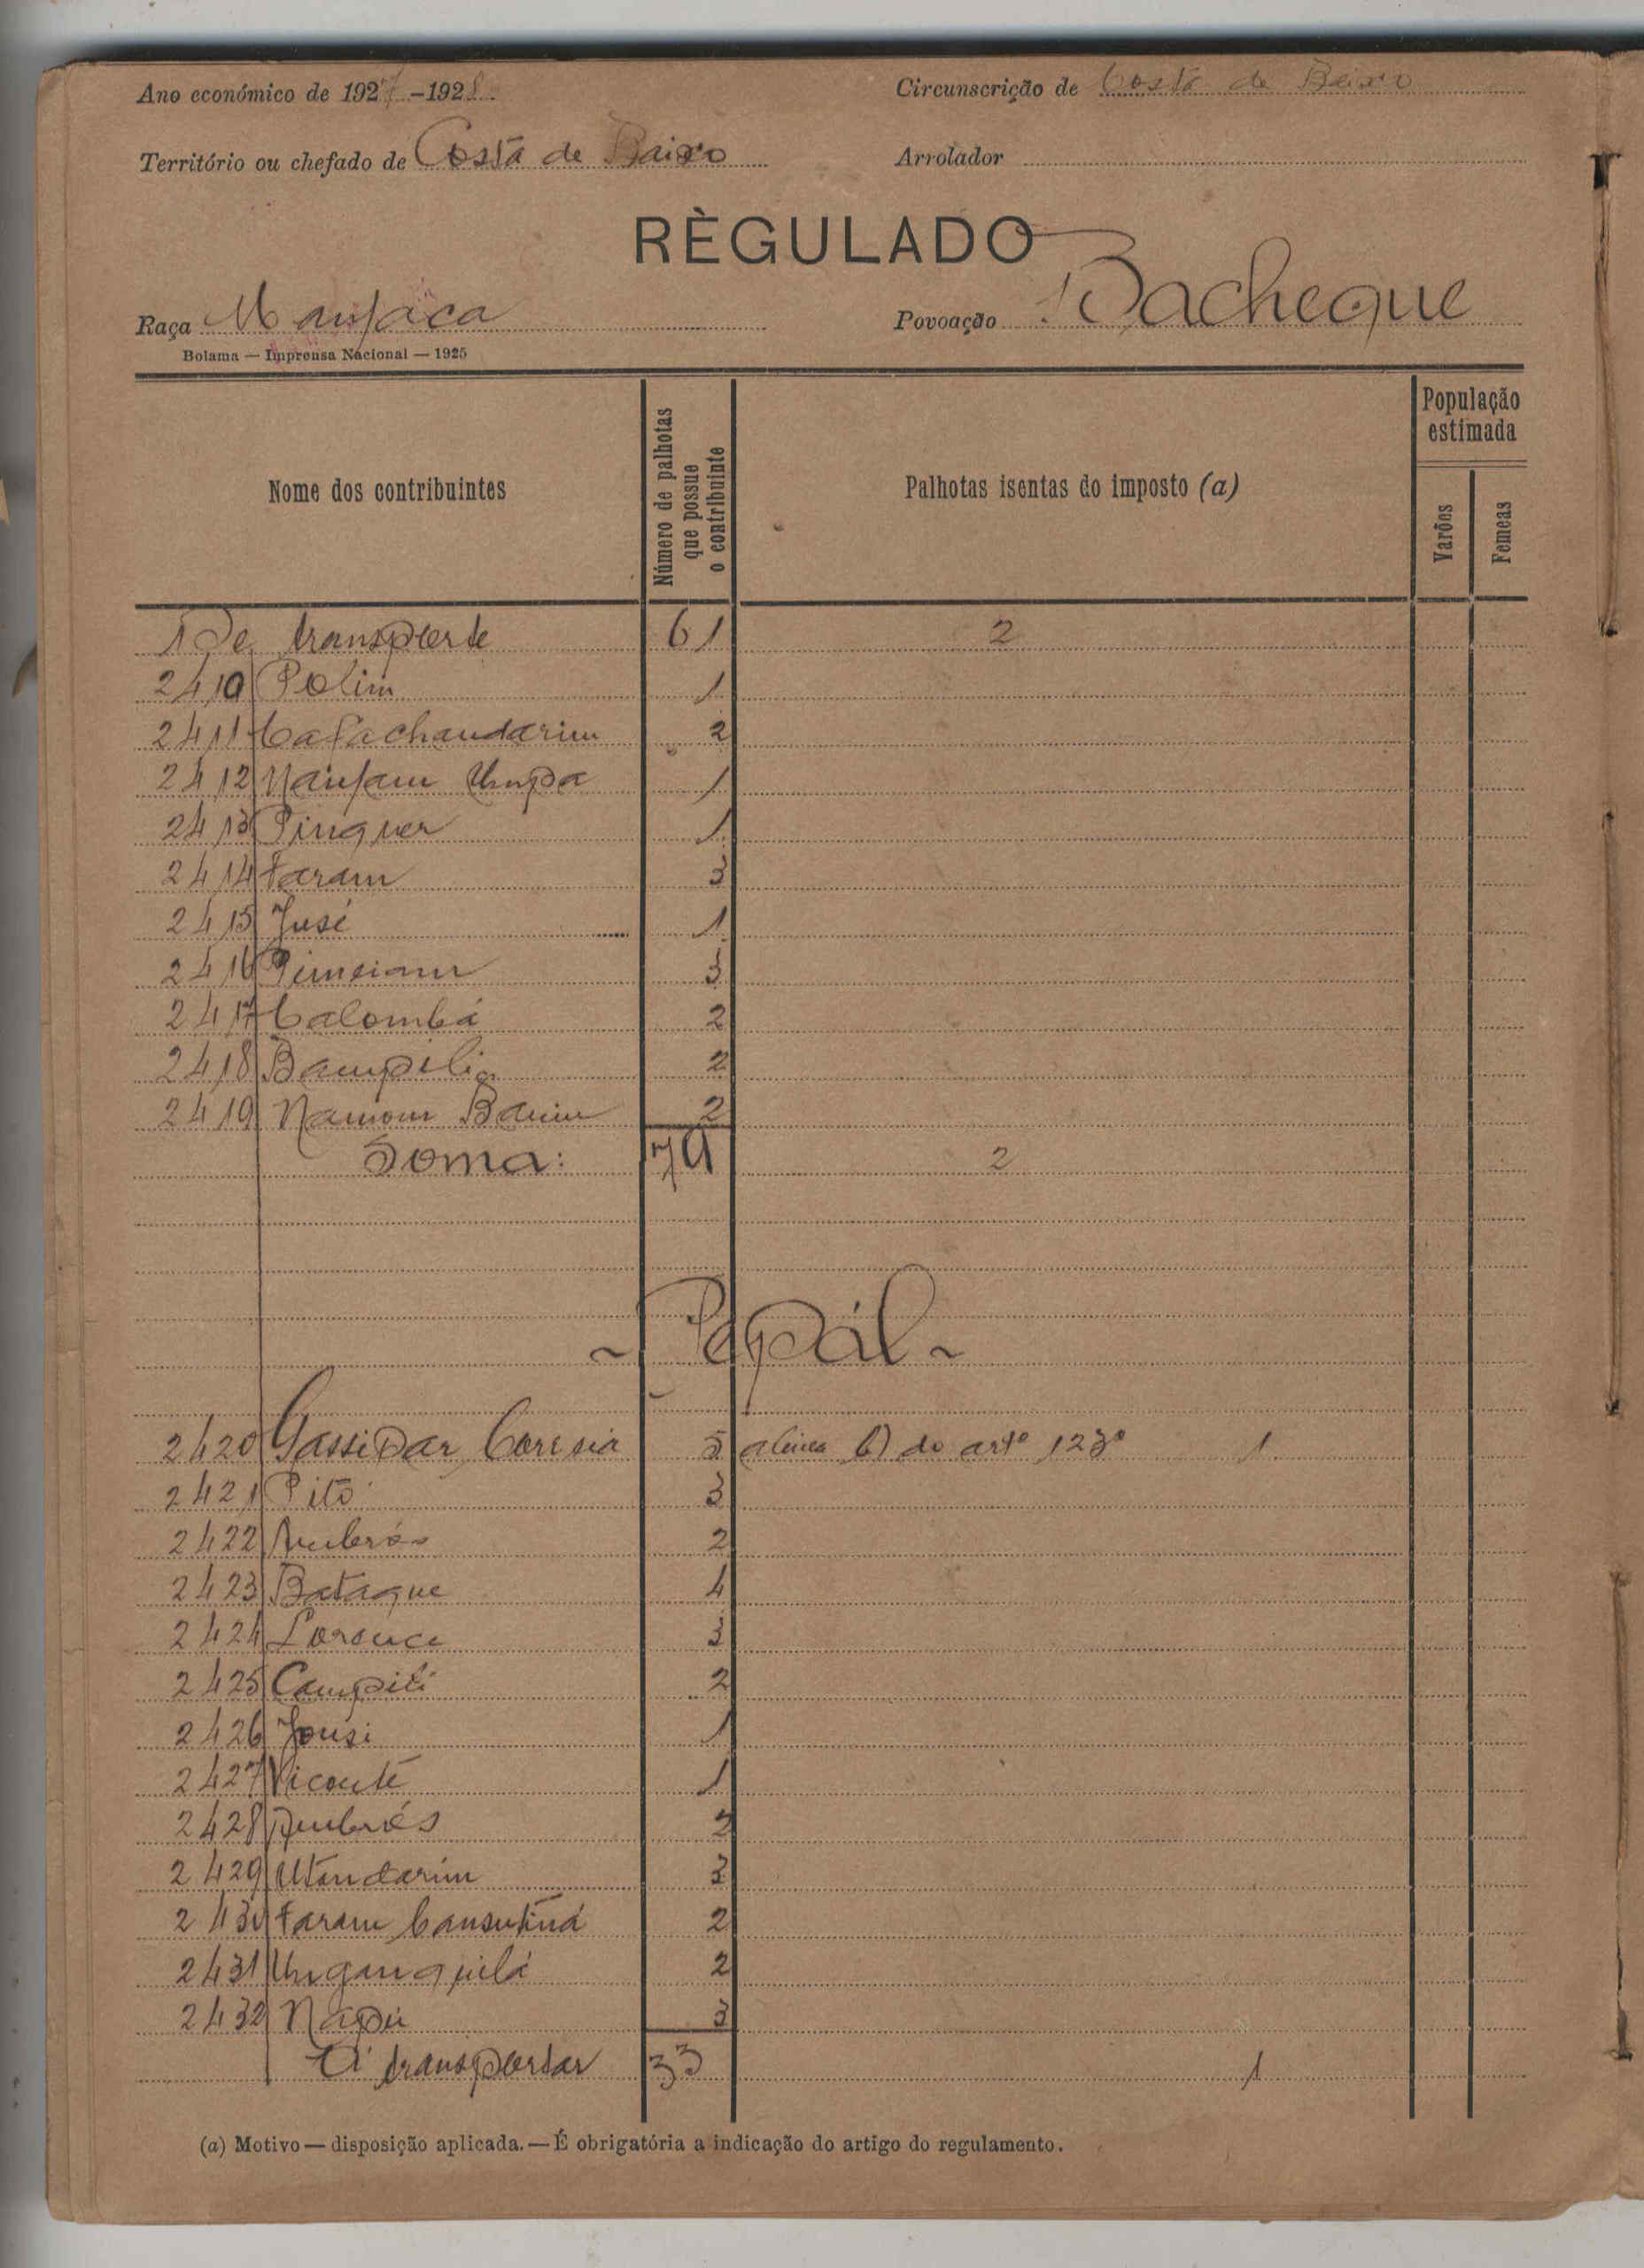 Ano económico de 1927-1928.
Circunscrição de Costa de Baixo
Território ou chefado de Costa de Baixo
Arrolador
RÈGULADO
Raça Manjaca
Povoação Bacheque
Bolama — Imprensa Nacional — 1925
Nome dos contribuintes
Número de palhotas que possue o contribuinte
Palhotas isentas do imposto (a)
População estimada
Varões
Femeas
De transporte 61 2
2410 Polim 1
2411 Cafachandarim 2
2412 Naufam Unpa 1
2413 Pinguer 1
2414 Faram 3
2415 Jusé 1
2416 3
2417 Calombá 2
2418 Bampili 2
2419 Namom Banim 2
Soma: 79 2
~ Pepál ~
2420 Gassipar Coreia 5 alinea b) do artº 123º 1
2421 Pitó 3
2422 Ambrós 2
2423 Bataque 4
2424 Lorence 3
2425 Campili 2
2426 Jousi 1
2427 Vicente 1
2428 Ambrós 2
2429 Utandarim 3
2430 Faram Cansutiná 2
2431 Unganquilá 2
2432 Napu 3
A transportar 33 1
(a) Motivo — disposição aplicada. — É obrigatória a indicação do artigo do regulamento.